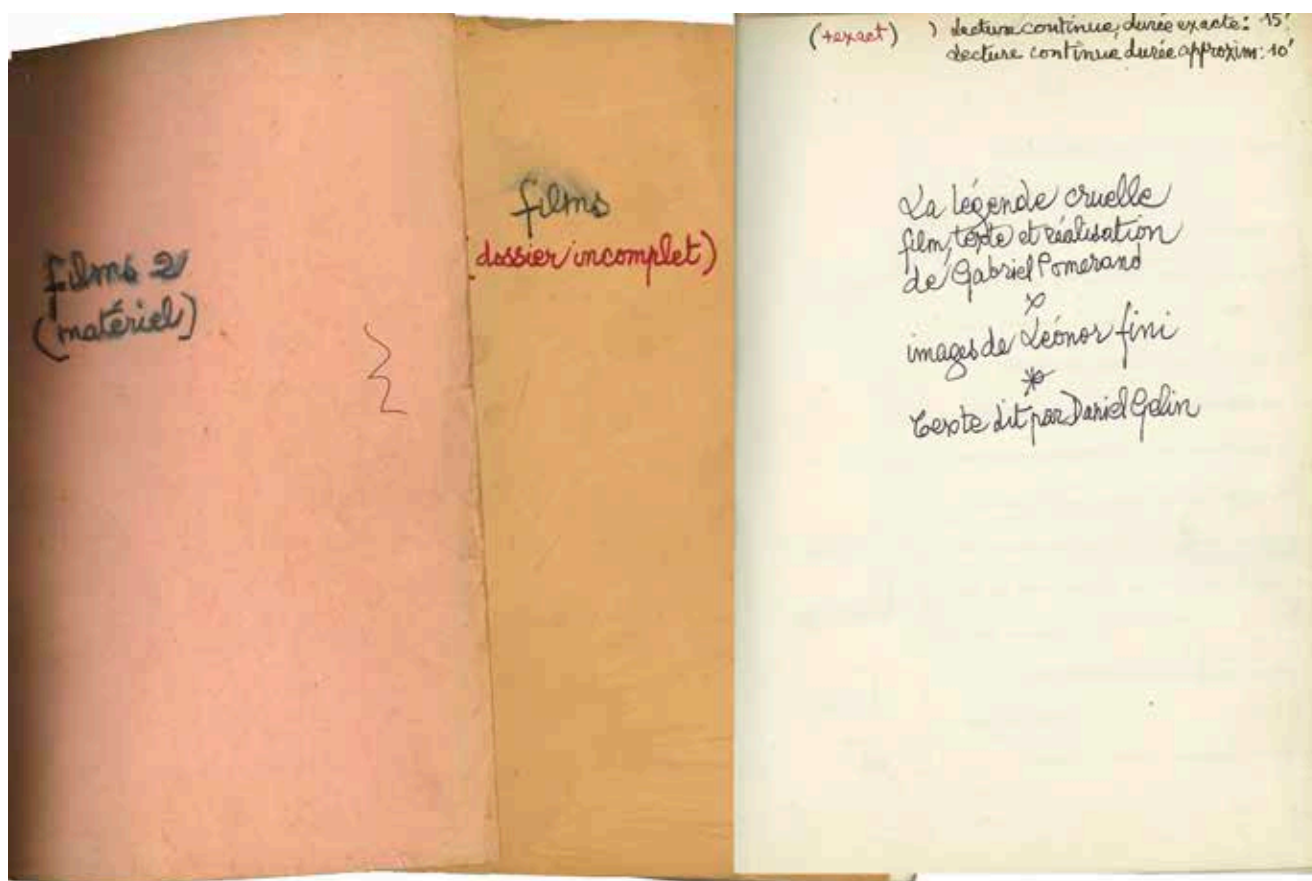 films 2
(matériel)
films
dossier incomplet)
(+exact) ) lecture continue, durée exacte: 15'
lecture continue durée approxim: 10'
La légende cruelle
film, texte et réalisation
de Gabriel Pomerand
images de Léonor fini
texte dit par Daniel Gélin